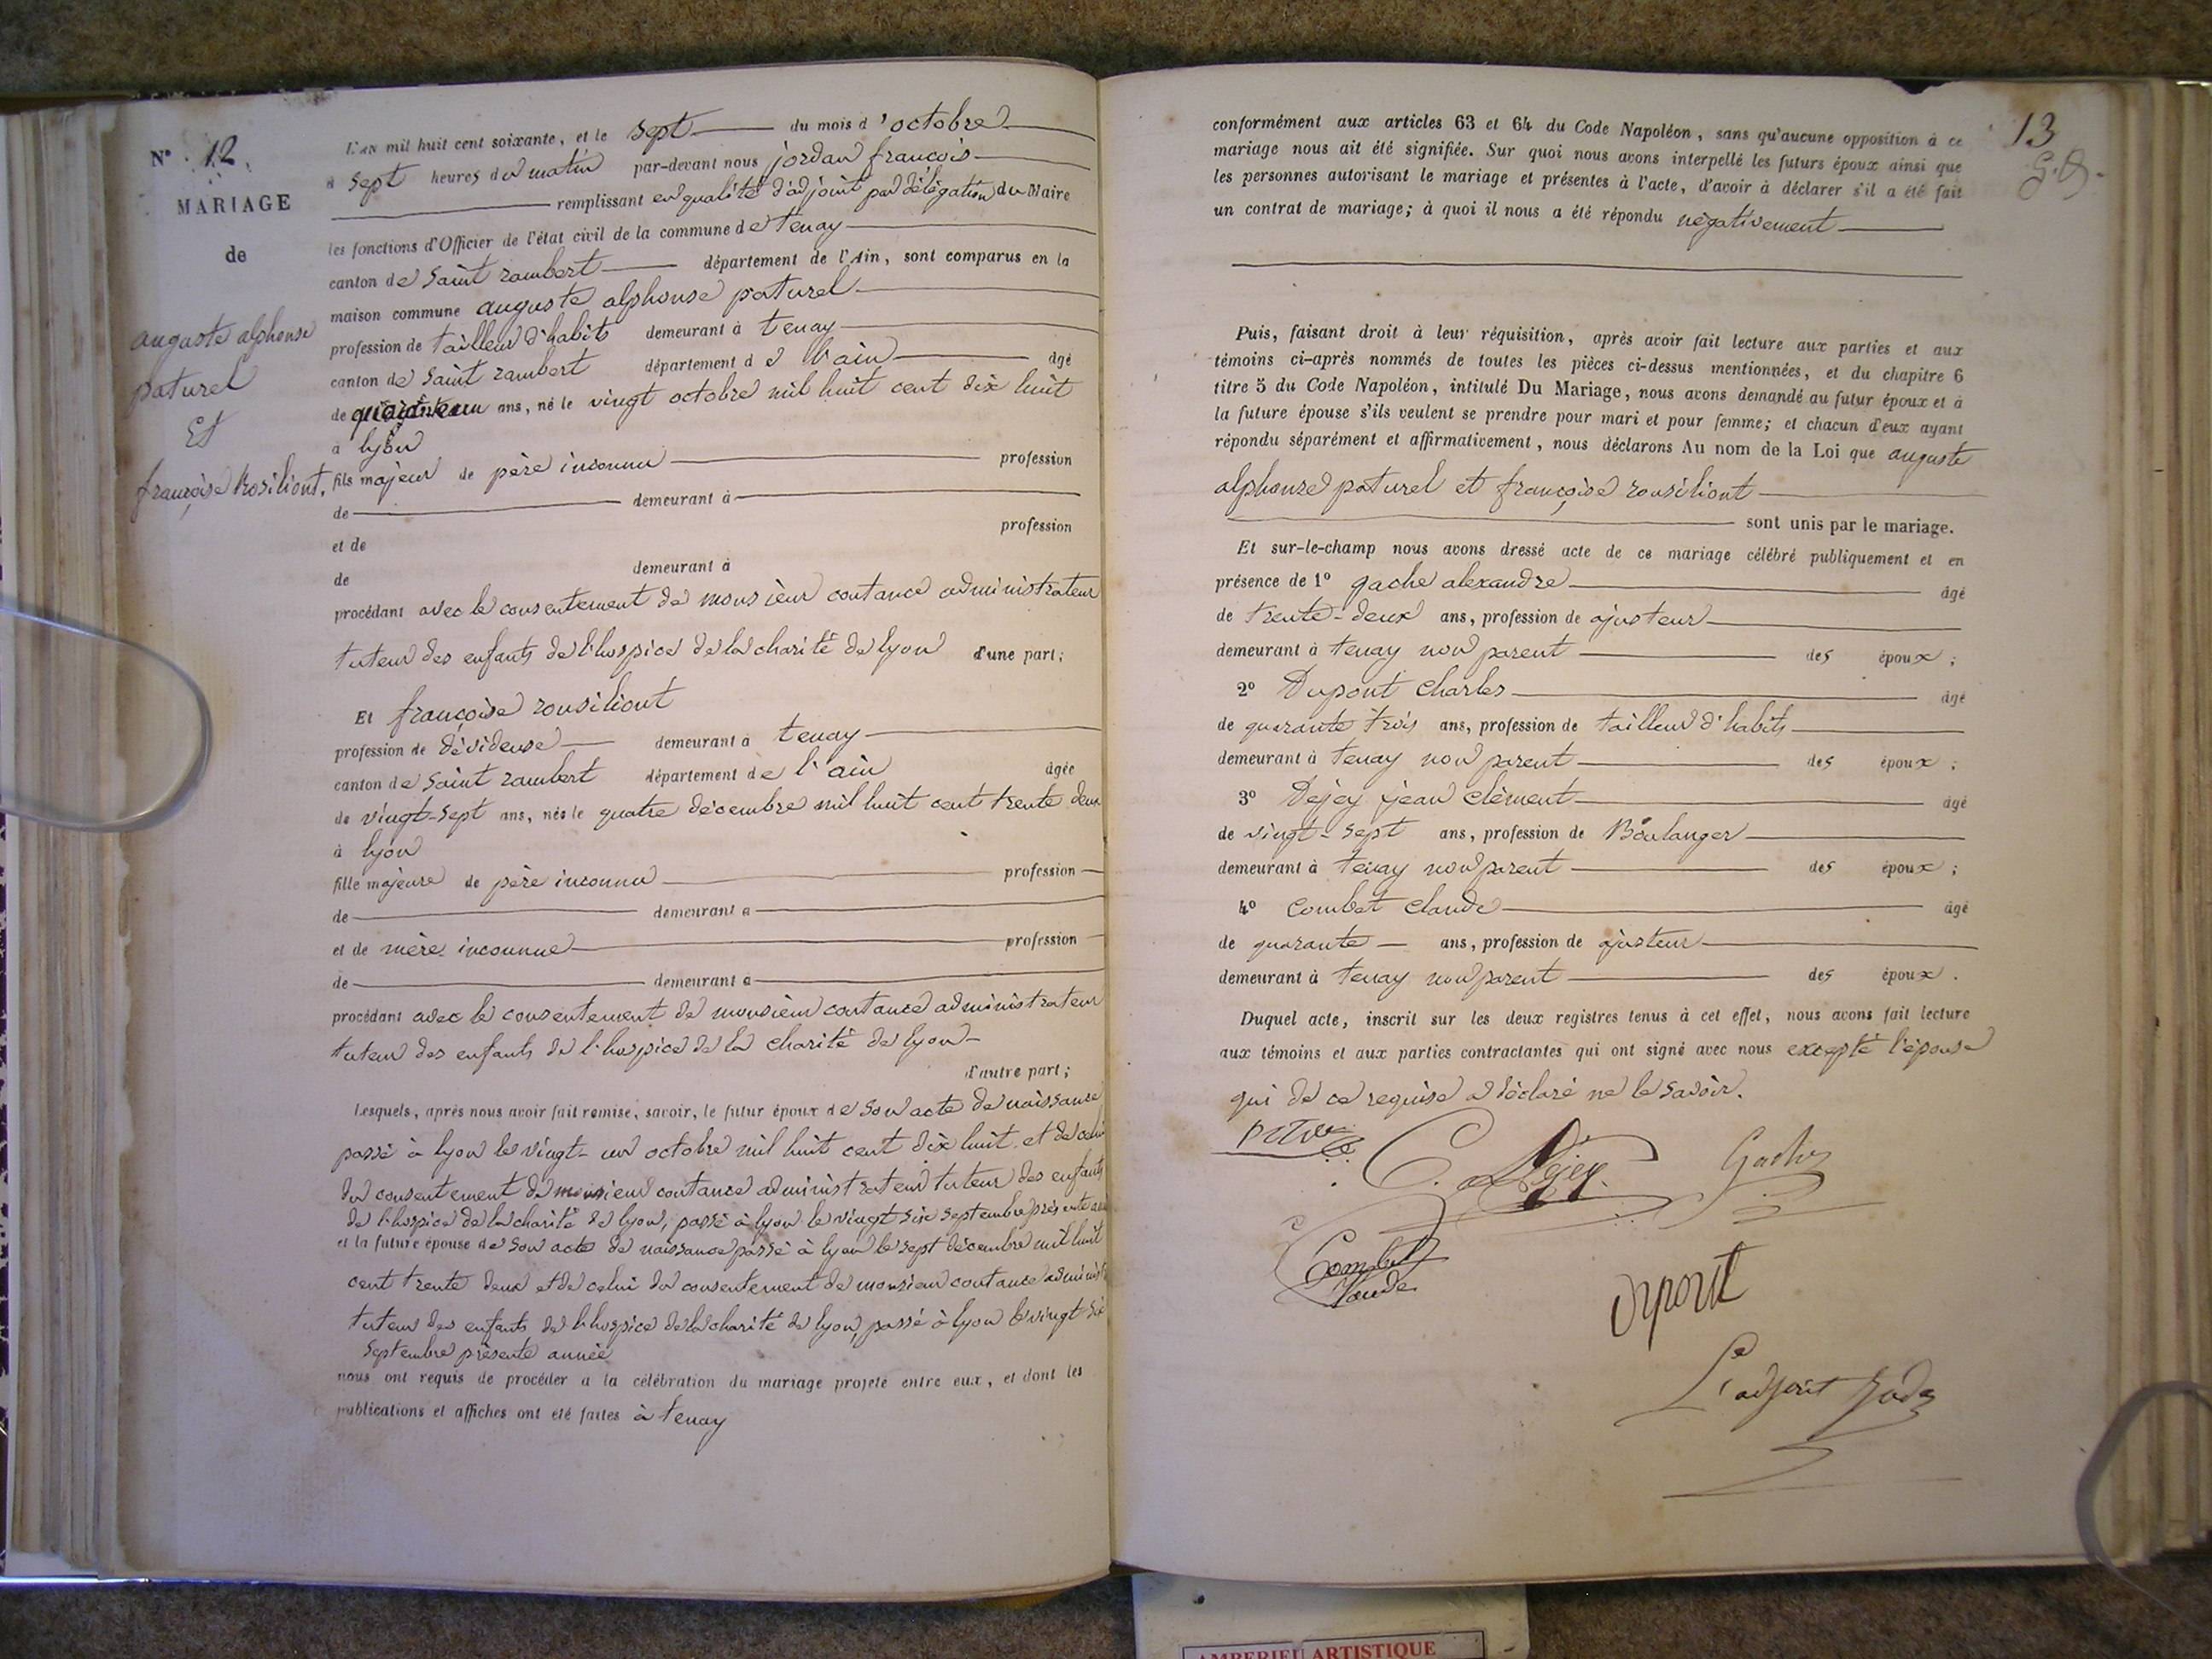 N° 12.
MARIAGE
de
auguste alphonse
paturel
Et
françoise Rosiliont.
L'AN mil huit cent soixante, et le sept du mois d'octobre
à sept heures du matin par-devant nous jordan françois
remplissant en qualité d'adjoint par délégation du Maire
les fonctions d'Officier de l'état civil de la commune de tenay
canton de saint rambert département de l'Ain, sont comparus en la
maison commune auguste alphonse paturel
profession de tailleur d'habits demeurant à tenay
canton de saint rambert département de l'ain âgé
de ans, né le vingt octobre mil huit cent dix huit
à lyon
fils majeur de père inconnu profession
de demeurant à
et de profession
de demeurant à
procédant avec le consentement de monsieur coutance administrateur
tuteur des enfants de l'hospice de la charité de lyon d'une part;
Et françoise rousiliont
profession de dévideuse demeurant à tenay
canton de saint rambert département de l'ain âgée
de vingt-sept ans, née le quatre décembre mil huit cent trente deux
à lyon
fille majeure de père inconnu profession
de demeurant à
et de mère inconnue profession
de demeurant à
procédant avec le consentement de monsieur coutance administrateur
tuteur des enfants de l'hospice de la charité de lyon
d'autre part;
Lesquels, après nous avoir fait remise, savoir, le futur époux de son acte de naissance
passé à lyon le vingt-un octobre mil huit cent dix huit et de celui
du consentement de monsieur coutance administrateur tuteur des enfants
de l'hospice de la charité de lyon, passé à lyon le vingt six septembre présente
et la future épouse de son acte de naissance passé à lyon le sept décembre mil huit
cent trente deux et de celui du consentement de monsieur coutance administ
tuteur des enfants de l'hospice de la charité de lyon, passé à lyon le vingt six
septembre présente année
nous ont requis de procéder à la célébration du mariage projeté entre eux, et dont les
publications et affiches ont été faites à tenay
13
conformément aux articles 63 et 64 du Code Napoléon, sans qu'aucune opposition à ce
mariage nous ait été signifiée. Sur quoi nous avons interpellé les futurs époux ainsi que
les personnes autorisant le mariage et présentes à l'acte, d'avoir à déclarer s'il a été fait
un contrat de mariage; à quoi il nous a été répondu négativement
Puis, faisant droit à leur réquisition, après avoir fait lecture aux parties et aux
témoins ci-après nommés de toutes les pièces ci-dessus mentionnées, et du chapitre 6
titre 5 du Code Napoléon, intitulé Du Mariage, nous avons demandé au futur époux et à
la future épouse s'ils veulent se prendre pour mari et pour femme; et chacun d'eux ayant
répondu séparément et affirmativement, nous déclarons Au nom de la Loi que auguste
alphonse paturel et françoise rousiliont
sont unis par le mariage.
Et sur-le-champ nous avons dressé acte de ce mariage célébré publiquement et en
présence de 1° gache alexandre âgé
de trente-deux ans, profession de ajusteur
demeurant à tenay non parent des époux;
2° Dupont Charles âgé
de quarante trois ans, profession de tailleur d'habits
demeurant à tenay non parent des époux;
3° Dejey jean clément âgé
de vingt-sept ans, profession de Boulanger
demeurant à tenay non parent des époux;
4° Combet claude âgé
de quarante ans, profession de ajusteur
demeurant à tenay non parent des époux.
Duquel acte, inscrit sur les deux registres tenus à cet effet, nous avons fait lecture
aux témoins et aux parties contractantes qui ont signé avec nous excepté l'épouse
qui de ce requise a déclaré ne le savoir.
Dejey. Gache
Combet
Claude
Dupont
L'adjoint
AMBERIEU ARTISTIQUE